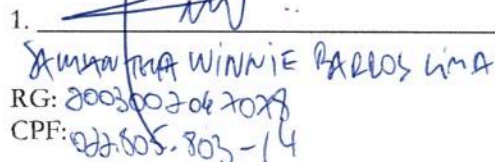 1.
SAMANTHA WINNIE BARROS LIMA
RG: 2003002047028
CPF: 022.805.803-14